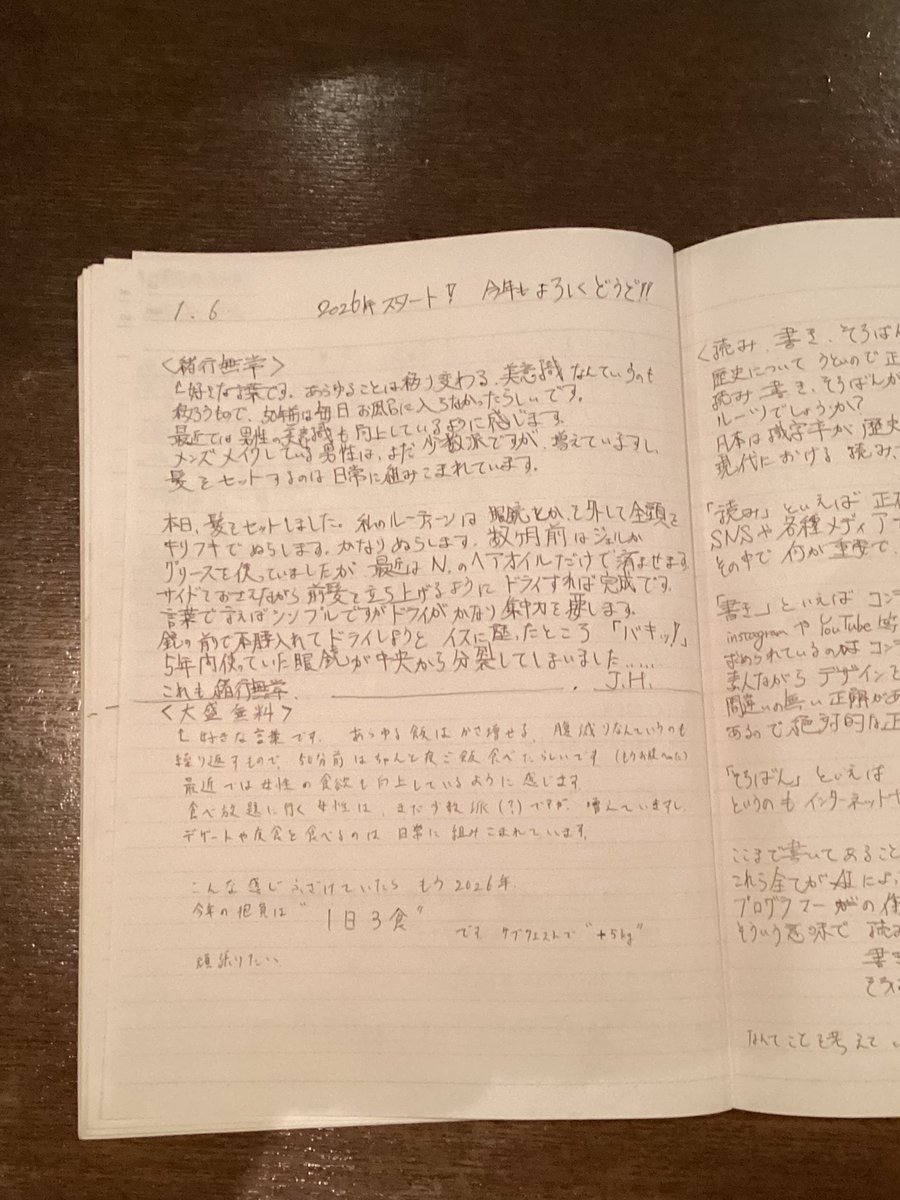 1.6 2026年スタート!! 今年もよろしくどうぞ!!
<諸行無常>
└好きな言葉です。あらゆることは移り変わる。美意識なんていうのも
移ろうもので、50年前は毎日お風呂に入らなかったらしいです。
最近では男性の美意識も向上しているように感じます。
メンズメイクしている男性は、まだ少数派ですが、増えていますし、
髪をセットするのは日常に組みこまれています。
本日、髪をセットしました。私のルーティーンは眼鏡とか、を外して全頭を
キリフキでぬらします。かなりぬらします。数ヶ月前はジェルか
グリースを使っていましたが、最近はN.のヘアオイルだけで済ませます。
サイドをおさえながら前髪を立ち上げるようにドライすれば完成です。
言葉で言えばシンプルですがドライがかなり集中力を要します。
鏡の前で本腰入れてドライしようとイスに座ったところ「バキッ!!」
5年間使っていた眼鏡が中央から分裂してしまいました……
これも諸行無常. J.H.
<大盛無料>
└好きな言葉です。あらゆる飯はかさ増せる。腹減りなんていうのも
繰り返すもので、50分前はちゃんと夜ご飯食べたらしいです
最近では女性の食欲も向上しているように感じます。
食べ放題に行く女性は、まだ少数派(?)ですが、増えていますし、
デザートや夜食を食べるのは日常に組みこまれています。
こんな感じふざけていたらもう2026年.
今年の抱負は"1日3食"
です サブクエストで"+5kg"
頑張りたい
<読み、書き、そろばん
歴史について うといので正
読み 書き、そろばんが
ルーツでしょうか?
日本は識字率が歴史
現代における 読み、
「読み」といえば 正
SNSや各種メディア
その中で何が重要で、
「書き」といえば コン
instagramやYouTube
求められているのはコン
素人ながら デザインと
間違いの無い正解があ
あるので絶対的な正
「そろばん」といえば
というのもインターネット
ここまで書いてあること
これら全てがAIによ
プログラマーがの
そういう意味で 読み
書き
そろば
なんてことを考えてい